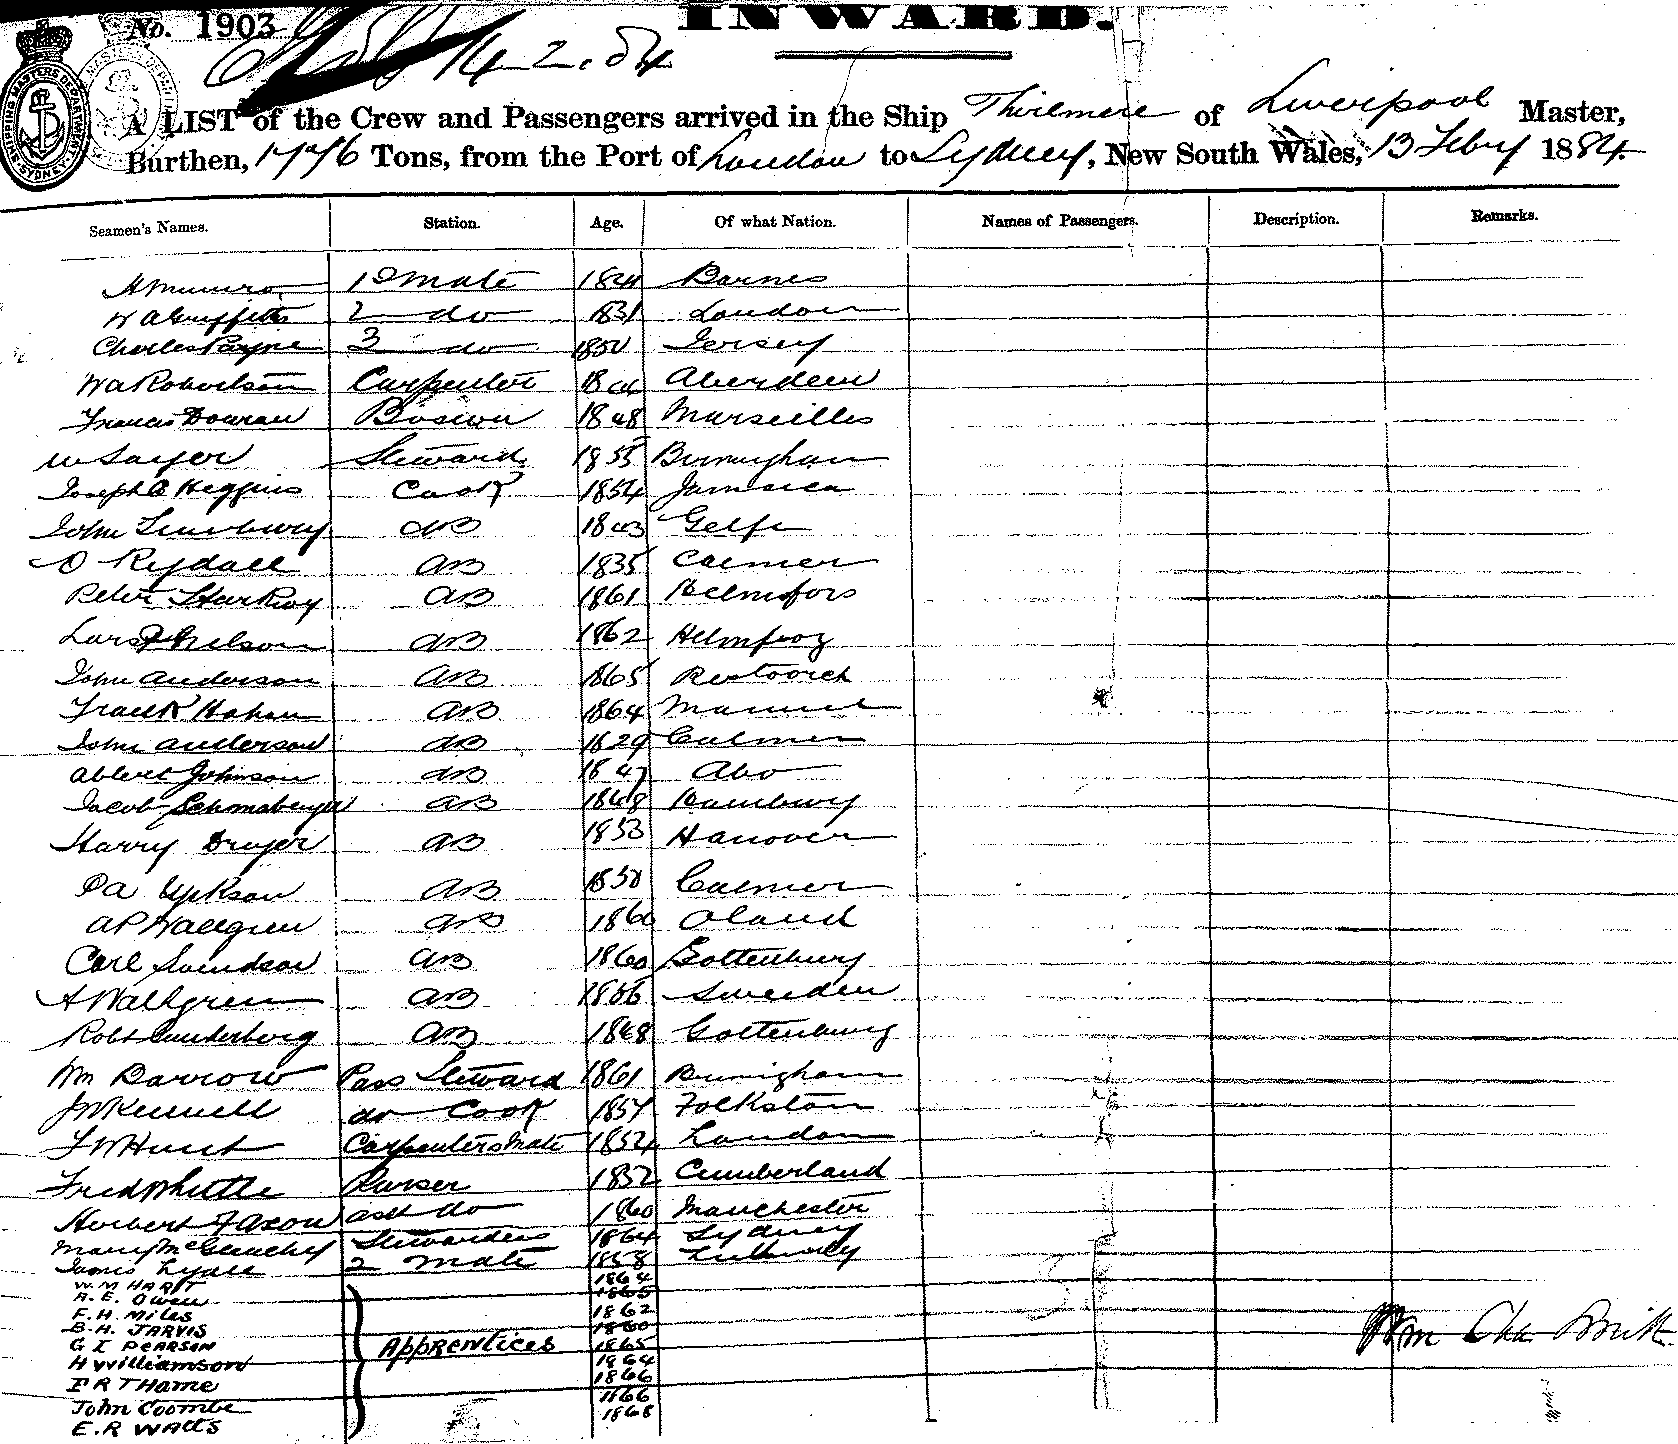 No. 1903
INWARD.
14.2.84
SHIPPING MASTERS DEPARTMENT SYDNEY
A LIST of the Crew and Passengers arrived in the Ship Thirlmere of Liverpool Master,
Burthen, 1776 Tons, from the Port of London to Sydney, New South Wales, 13 Febry 1884
Seamen's Names. Station. Age. Of what Nation. Names of Passengers. Description. Remarks.
A Munro 1st Mate Barnes
W A Griffiths 2 do 1831 London
Charles Payne 3 do 1850 Jersey
Wa Robertson Carpenter Aberdeen
Francis Bosun 1848 Marseilles
W Sayer Steward 1855 Birmingham
Joseph Higgins Cook 1854 Jamaica
John AB 1843 Gelfe
O Rydall AB 1835 Calmer
Peter AB 1861 Helmsfors
Lars Nelson AB 1862
John Anderson AB 1865
Frank AB 1864
John Anderson AB 1829 Calmer
Ablert Johnson AB 1847 Abo
Jacob AB 1848 Hamburg
Harry Dryer AB 1853 Hanover
AB 1858 Calmer
A P Wallgren AB 1860 Oland
Carl Svindson AB 1860 Gottenburg
A Wallgren AB 1856 Sweeden
Robt AB 1848 Gottenburg
Wm Barrow Pass Steward 1861
J W Kennell do Cook 1857 Folkston
F W Hunt Carpenters Mate 1854 London
Fred Whittle Purser 1852 Cumberland
Herbert Faxon asst do 1860 Manchester
Mary Stewardess 1864 Sydney
James Lyall 2 Mate 1858
W. M HART 1864
A. E. Owen 1865
F. H. Miles 1862
B. H. JARVIS 1860
G I PEARSON Apprentices 1865
H Williamson 1864
F R THame 1866
John Coombe 1866
E. R Watts 1868
Wm Chas